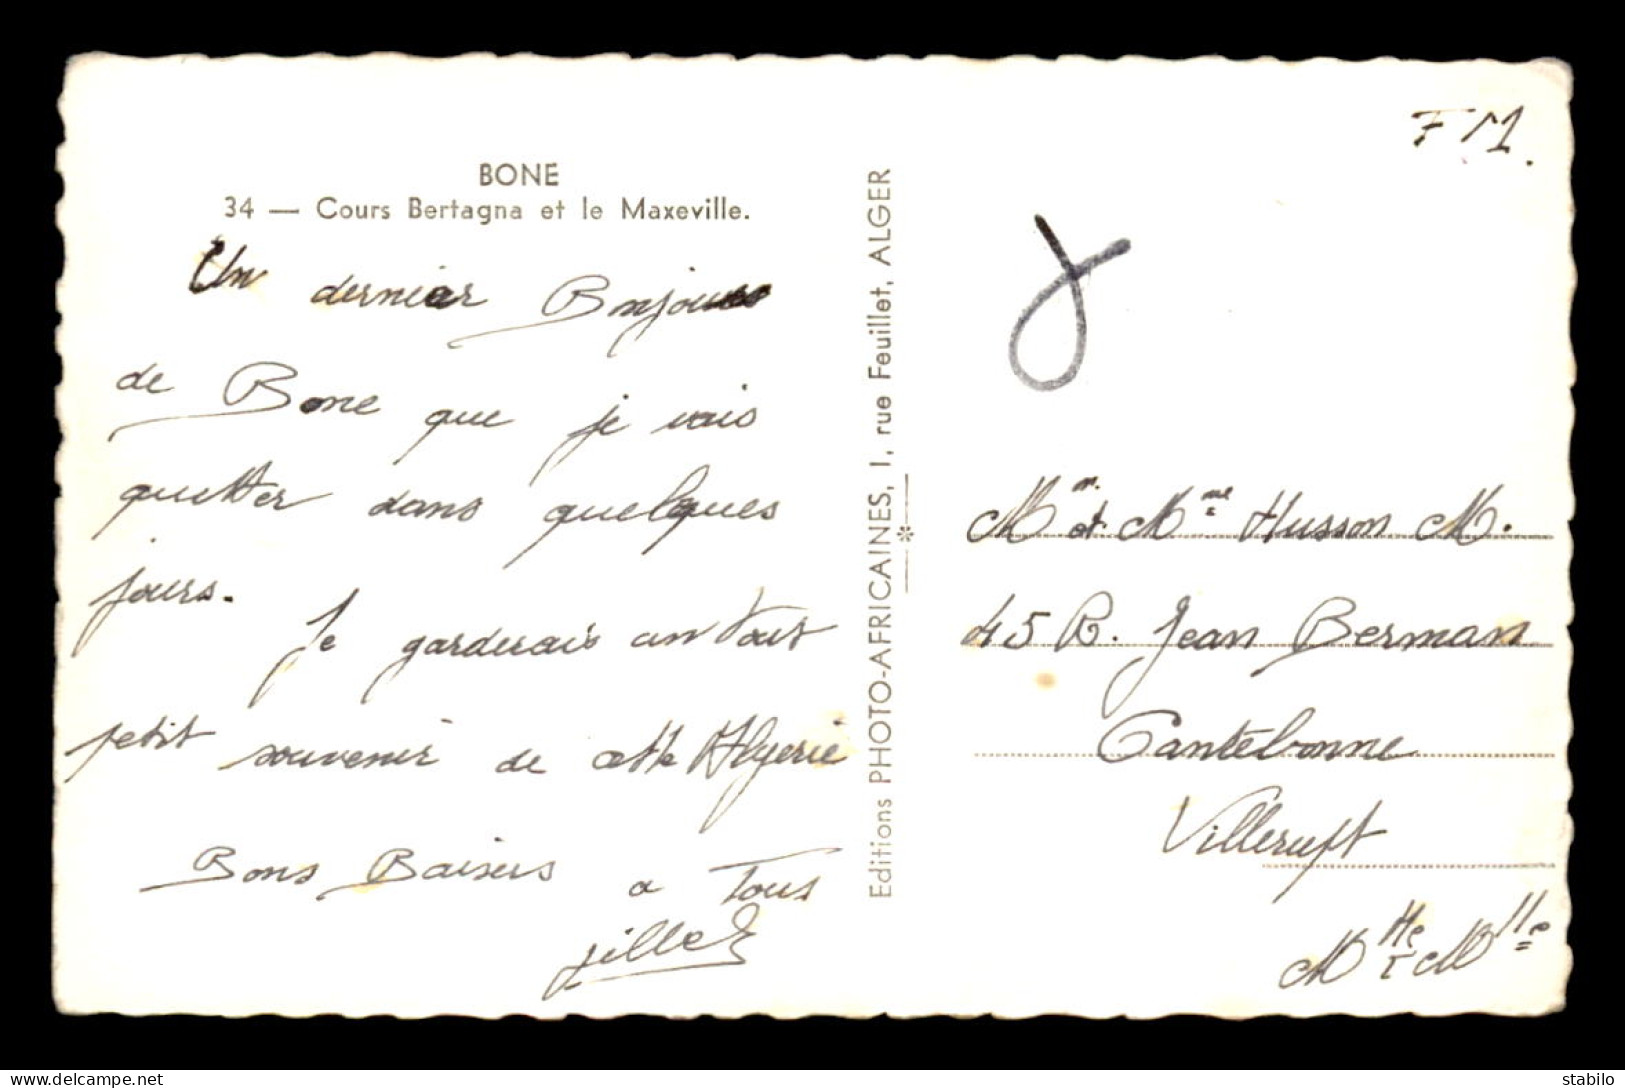 BONE
34 — Cours Bertagna et le Maxeville.
Un dernier Bonjour
de Bone que je vais
quitter dans quelques
jours.
Je garderais un tout
petit souvenir de cette Algerie
Bons Baisers a Tous
Editions PHOTO-AFRICAINES, 1, rue Feuillet, ALGER
F M.
Mr. et Mme Husson M.
45 R. Jean Berman
Cantebonne
Villerupt
M et Mlle
stabilo